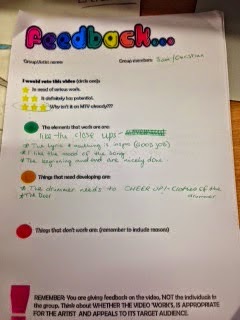 feedback...
Group/artist name: Group members: Sam/Christian
I would vote this video (circle one):
In need of serious work.
It definitely has potential.
Why isn't on MTV already???
The elements that work are:
like the close ups -
* The lyrics + nothing is insync (Good job)
* I like the mood of the song
* The beginning and end are nicely done.
Things that need developing are:
* The drummer needs to CHEER UP! - Closeup of the drummer
* The
Things that don't work are: (remember to include reasons)
REMEMBER: You are giving feedback on the video, NOT the individuals in
the group. Think about WHETHER THE VIDEO 'WORKS', IS APPROPRIATE
FOR THE ARTIST AND APPEALS TO ITS TARGET AUDIENCE.